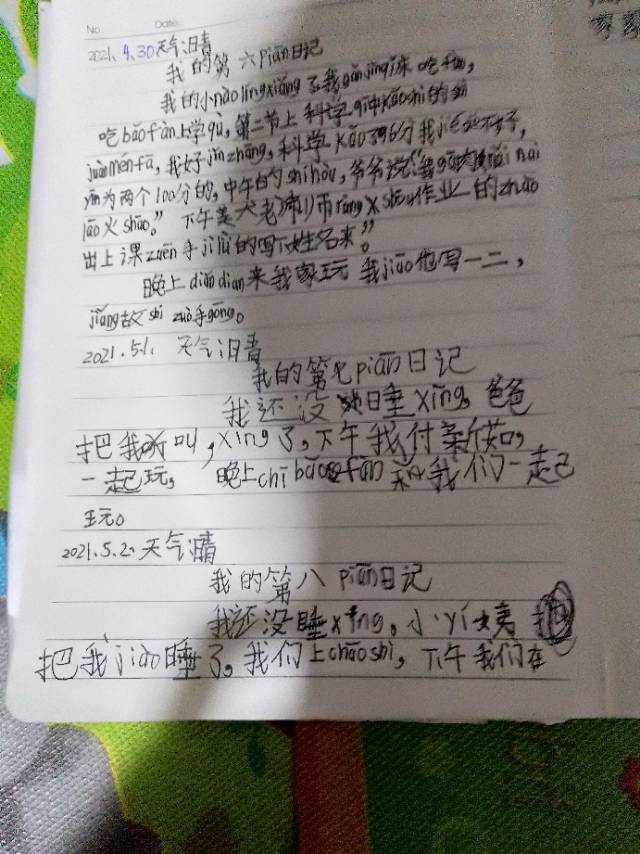 No Date
2021. 4.30天气晴
我的第六piān日记
我的小nāo líng xiǎng了我gǎn jǐn qǐ床吃fàn,
吃bǎo fàn上学qù, 第二节上科学qī中kǎo shì的
juàn mén fā, 我好jǐn zhāng, 科学kǎo了96分我jié
为两个100分的, 中午的shí hòu, 爷爷说:“
lāo火shāo。” 下午美术老师 ràng X shou作业一的zhāo
出上课zuēn手jì lǜ的写下姓名来”。
晚上diǎn dian来我家玩我jiāo他写一二,
jiǎng故shi zuò手gōng。
2021.5.1. 天气晴
我的第七piān日记
我还没睡xǐng, 爸爸
把我叫, xǐng了, 下午我付亲
一起玩, 晚上chī bǎo fàn 和我们一起
玩。
2021.5.2. 天气晴
我的第八piān日记
我还没睡xǐng, 小yí姨
把我jiào睡了, 我们上chāo shì, 下午我们在
家